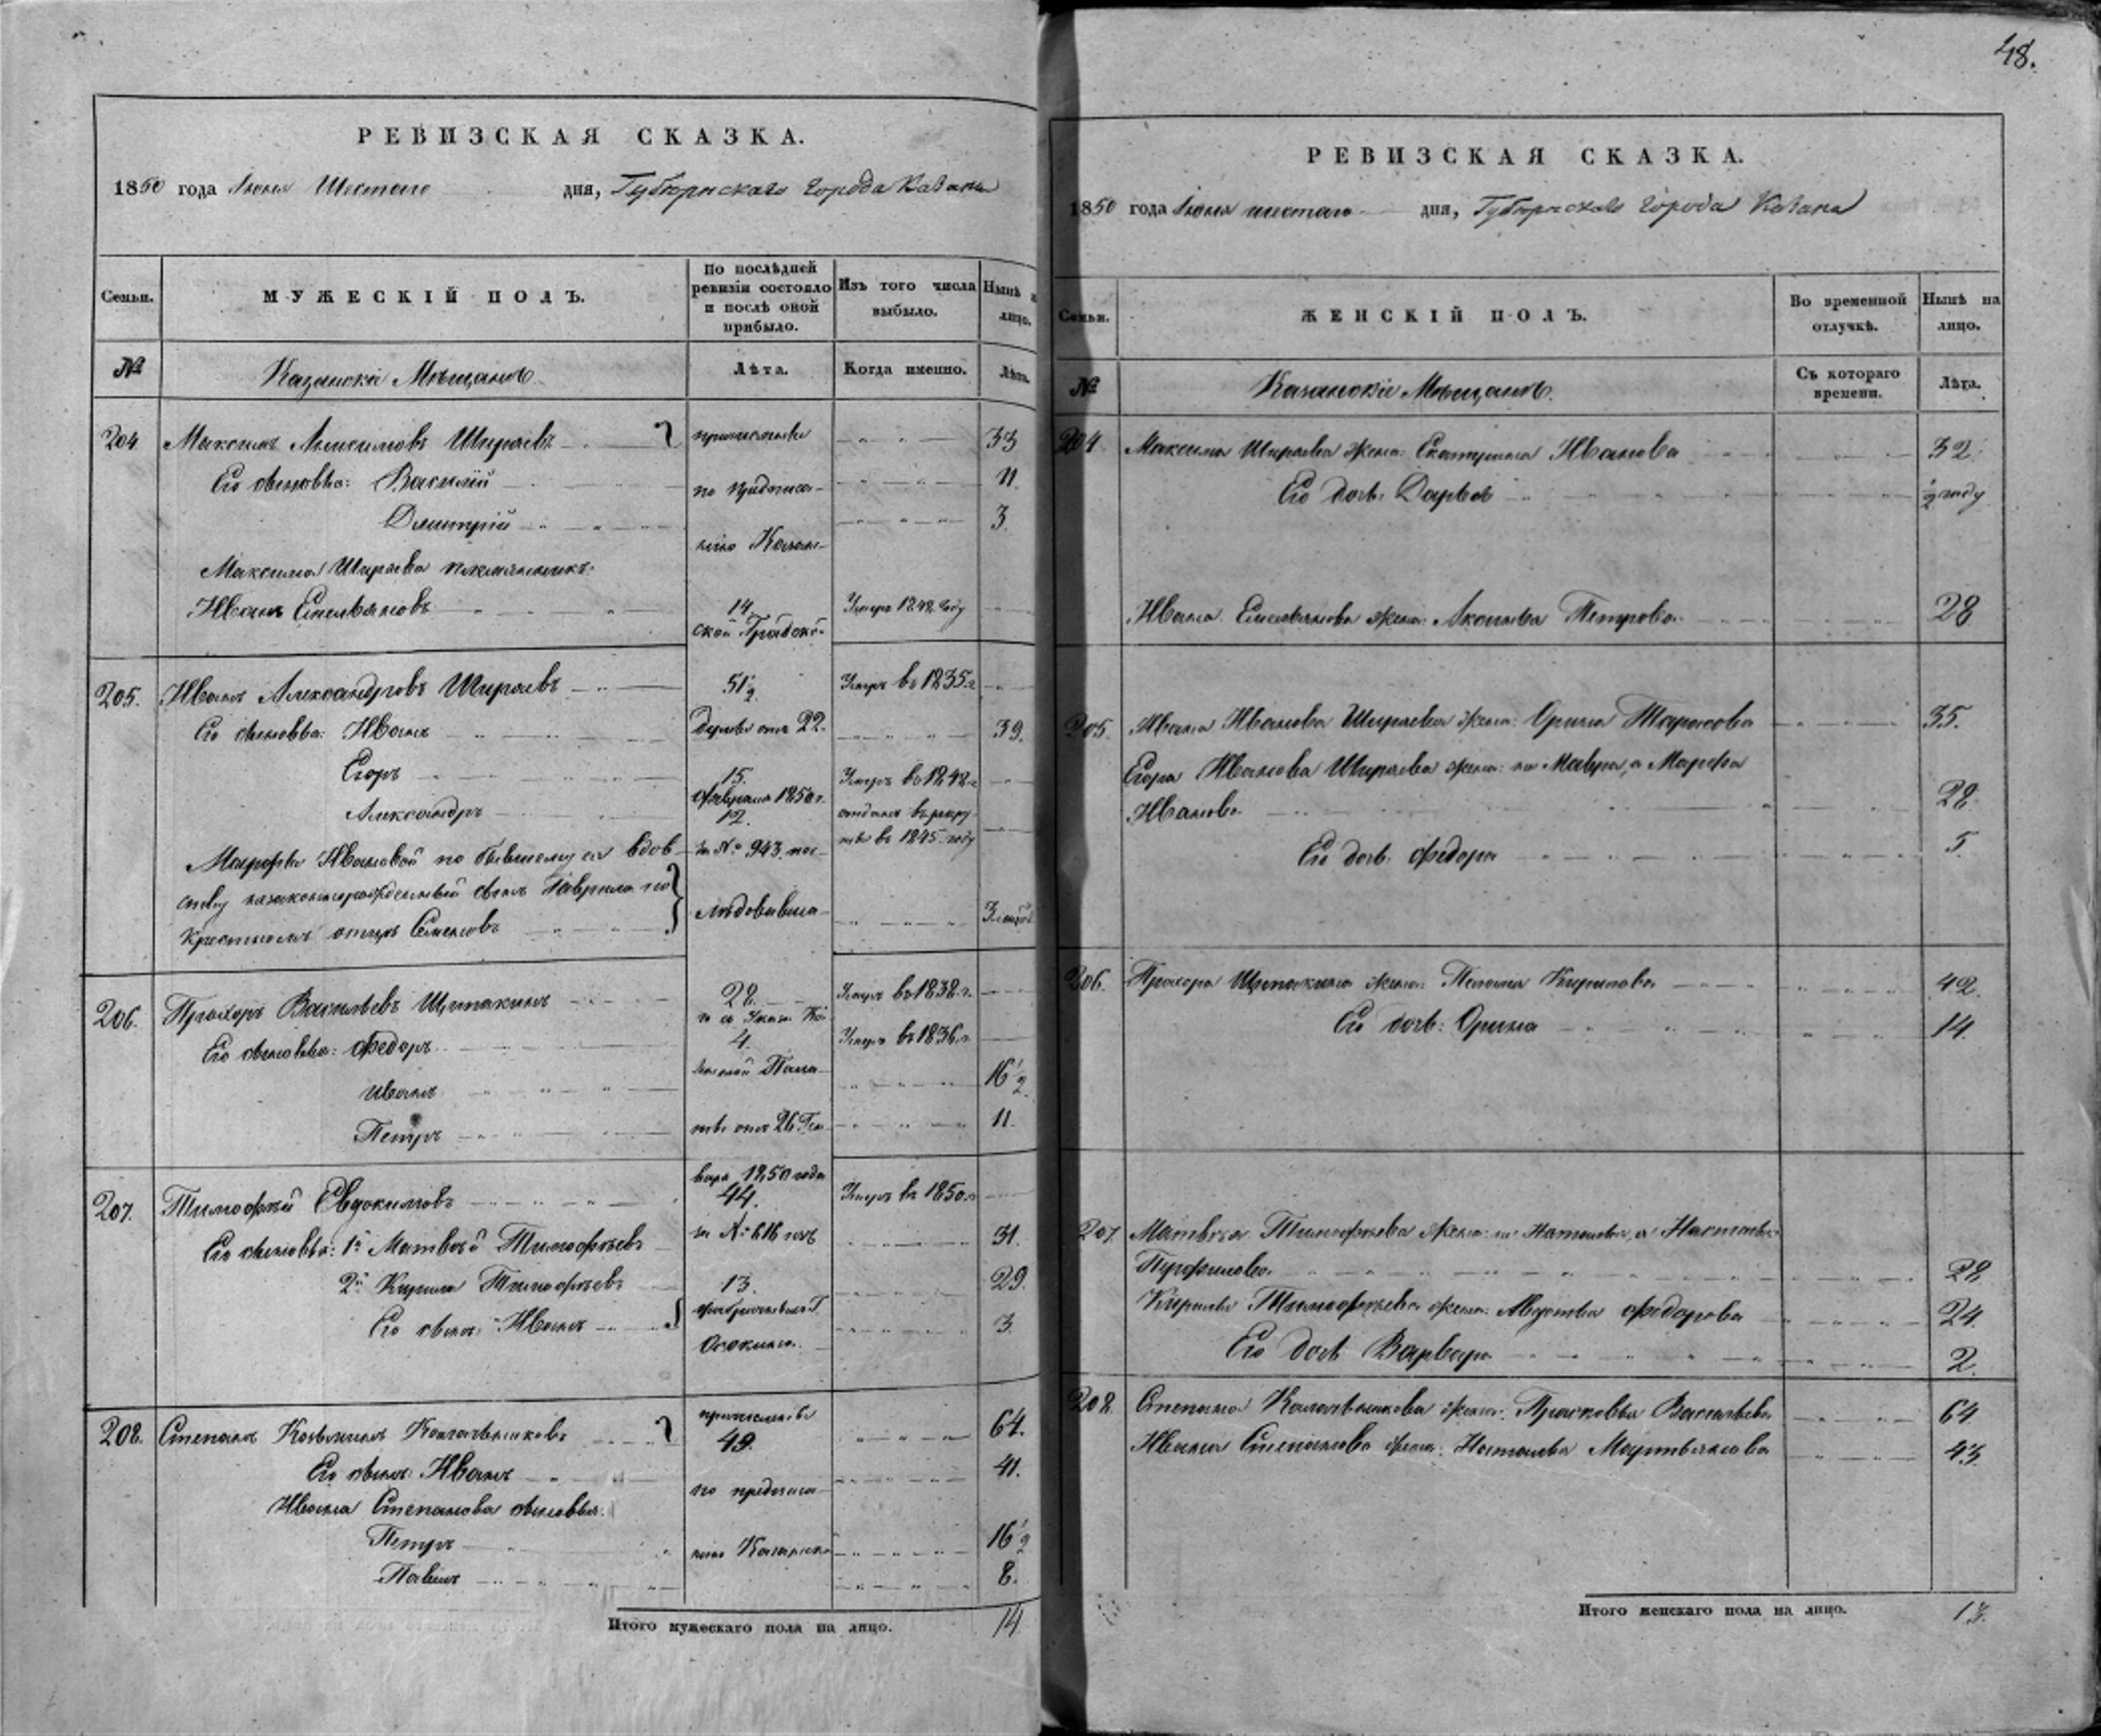 РЕВИЗСКАЯ СКАЗКА.
1850 года Іюня Шестаго дня, Губернскаго Города Казани
Семьи.
МУЖЕСКІЙ ПОЛЪ.
По послѣдней ревизіи состояло и послѣ оной прибыло.
Изъ того числа выбыло.
Нынѣ на лицо.
№
Казанскіе Мѣщане
Лѣта.
Когда именно.
Лѣта.
204 Максимъ Ширяевъ причисленъ 33
Его сыновья: Василій по предписа- 11
Дмитрій 3.
нію Казан-
Максима Ширяева племянникъ:
Иванъ Емельяновъ 14 Умеръ 1848 году
ской Градской
205. Иванъ Александровъ Ширяевъ 51 1/2 Умеръ въ 1835 г
Его сыновья: Иванъ Думы отъ 22. 39.
Егоръ 15. Умеръ въ 1848 г
Февраля 1850 г.
Александръ 12. отданъ въ рекру-
ты въ 1845 году
Марфы Ивановой по бывшему ея вдов- за № 943. пос-
ству незаконнорожденный сынъ Гаврила по
лѣдовавша-
крестномъ отцѣ Семеновъ
206. Прохоръ Васильевъ Щетакинъ 28. Умеръ въ 1838 г.
го съ Указа Ка-
Его сыновья: Федоръ 4. Умеръ въ 1836 г.
зенной Пала-
Иванъ 16 1/2
Петръ ты отъ 26 Ген- 11.
варя 1850 года
207. Тимофей Евдокимовъ 44. Умеръ въ 1850 г
Его сыновья: 1й Матвѣй Тимофеевъ за № 616 изъ 31.
2й Кирила Тимофеевъ 13. 29.
фабричныхъ Г.
Его сынъ: Иванъ 3.
Осокина.
208. Степанъ Козьминъ Колотьниковъ причисленъ 49. 64.
Его сынъ: Иванъ 41.
по предписа-
Ивана Степанова сыновья:
Петръ 16 1/2
нію Казанско
Павелъ 8.
Итого мужескаго пола на лицо. 14
48.
РЕВИЗСКАЯ СКАЗКА.
1850 года Іюня шестаго дня, Губернскаго Города Казани
Семьи.
ЖЕНСКІЙ ПОЛЪ.
Во временной отлучкѣ.
Нынѣ на лицо.
№
Казанскіе Мѣщане.
Съ котораго времени.
Лѣта.
204. Максима Ширяева жена: Екатерина Иванова 32.
Его дочь: Дарья 1/2 году
Ивана Емельянова жена: Аксинья Петрова 28
205. Ивана Иванова Ширяева жена: Орина Тарасова 35.
Егора Иванова Ширяева жена: не Мавра, а Марфа
Иванова 28.
Его дочь: Федора 5
206. Прохора Щетакина жена: Пелагея Кирилова 42.
Его дочь: Орина 14.
207. Матвѣя Тимофеева жена: не Наталья, а Настасья
Перфилова 28
Кирилы Тимофеева жена: Авдотья Федорова 24.
Его дочь Варвара 2.
208. Степана Колотьникова жена: Прасковья Васильева 64
Ивана Степанова жена: Наталья Мартьянова 43
Итого женскаго пола на лицо. 13.